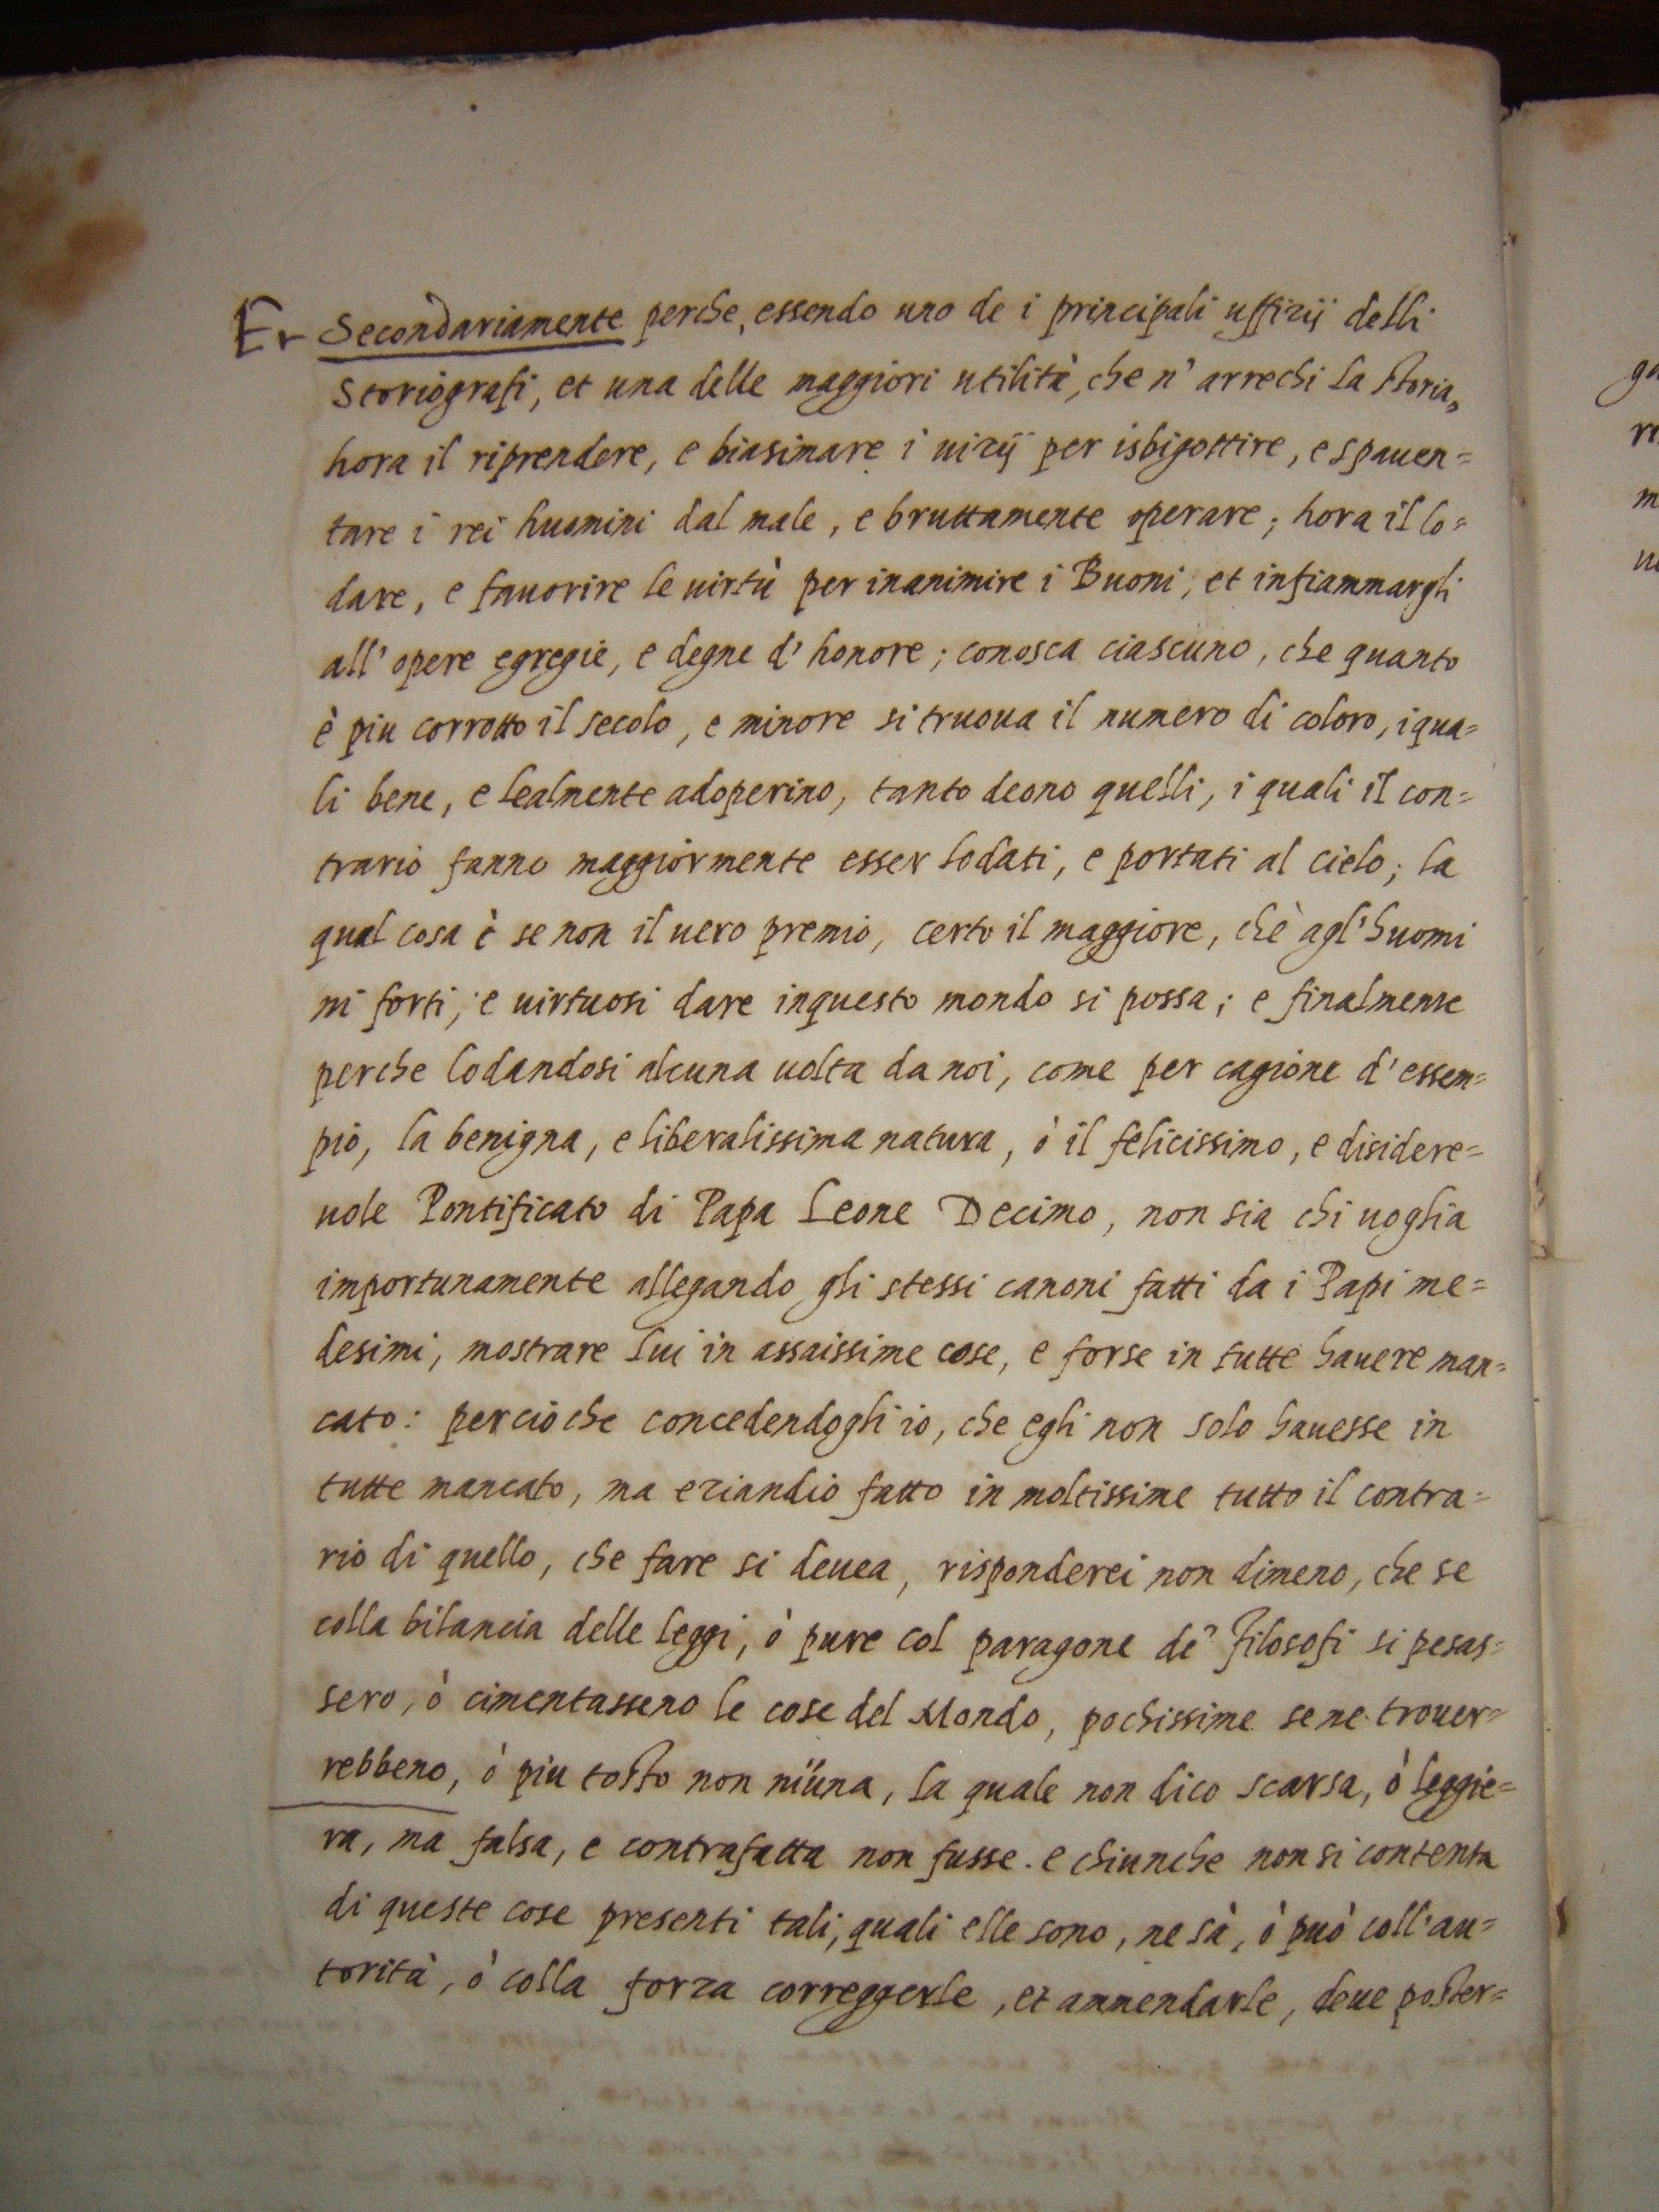 Et Secondariamente perche, essendo uno de i principali uffizij delli
Storiografi, et una delle maggiori utilità, che n' arrechi la storia,
hora il riprendere, e biasimare i uizij per isbigottire, e spauen=
tare i rei huomini dal male, e bruttamente operare; hora il lo=
dare, e fauorire le uirtù per inanimire i Buoni, et infiammargli
all' opere egregie, e degne d' honore; conosca ciascuno, che quanto
è piu corrotto il secolo, e minore si truoua il numero di coloro, i qua=
li bene, e lealmente adoperino, tanto deono quelli, i quali il con=
trario fanno maggiormente esser lodati, e portati al cielo; la
qual cosa è se non il uero premio, certo il maggiore, chè agl' huomi
ni forti, e uirtuosi dare inquesto mondo si possa; e finalmente
perche lodandosi alcuna uolta da noi, come per cagione d' essem=
pio, la benigna, e liberalissima natura, ò il felicissimo, e disidere=
uole Pontificato di Papa Leone Decimo, non sia chi uoglia
importunamente allegando gli stessi canoni fatti da i Papi me=
desimi, mostrare lui in assaissime cose, e forse in tutte hauere man=
cato: percioche concedendogli io, che egli non solo hauesse in
tutte mancato, ma eziandio fatto in moltissime tutto il contra=
rio di quello, che fare si deuea, risponderei non dimeno, che se
colla bilancia delle leggi, ò pure col paragone de' Filosofi si pesas=
sero, ò cimentasseno le cose del Mondo, pochissime se ne trouer=
rebbeno, ò piu tosto non niüna, la quale non dico scarsa, ò leggie=
ra, ma falsa, e contrafatta non fusse. e chiunche non si contenta
di queste cose presenti tali, quali elle sono, ne sà, ò può coll' au=
torità, ò colla forza correggerle, et ammendarle, deue poster=
ga